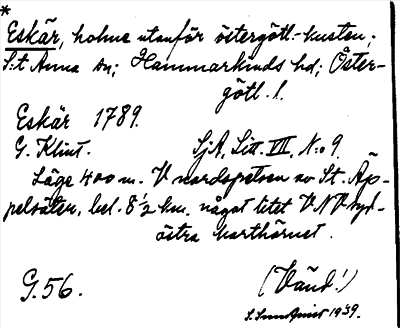 *
Eskär, holme utanför östergötl-kusten;
S:t Anna sn; Hammarkinds hd; Öster-
götl. l.
Eskär 1789.
G. Klint. SjA, Litt. VII, N:o 9.
Läge 400 m. V nordspetsen av St. Äp-
pelöten, bel. 8 1/2 km. något litet VNV syd-
östra karthörnet.
G. 56. (Vänd!)
S. Sundqvist 1939.